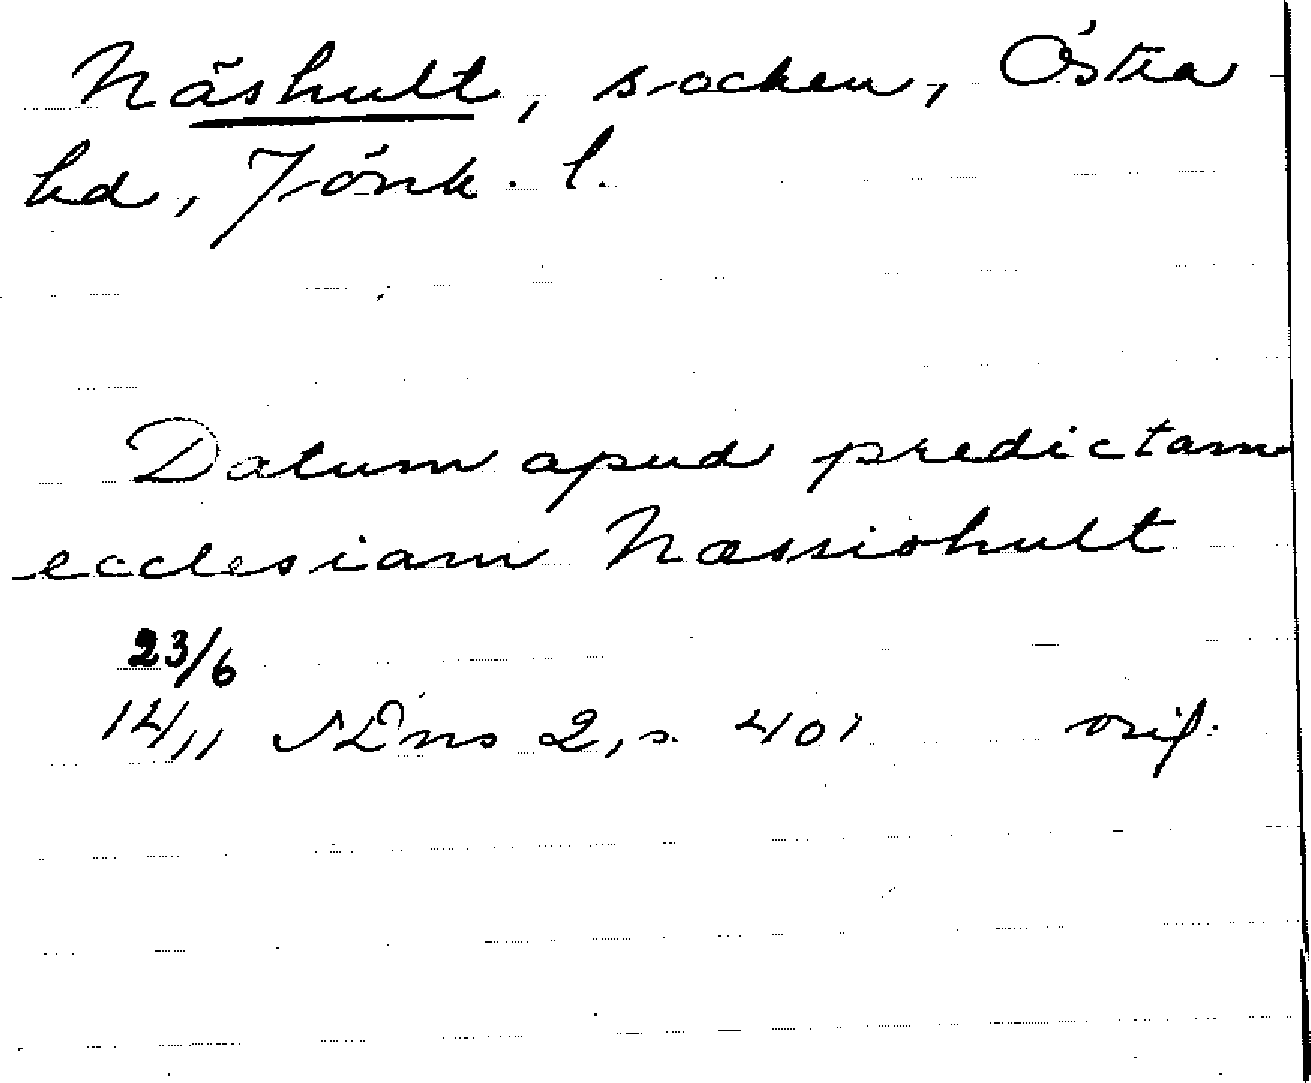 Näshult, socken, Östra
hd, Jönk. l.
Datum apud predictam
ecclesiam Næssiohult
23/6
1411 SDns 2, s. 401 orig.